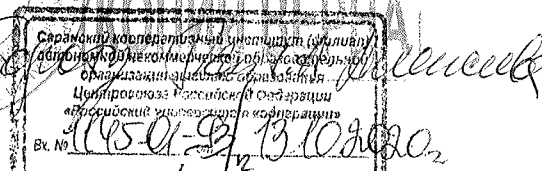 Саранский кооперативный институт (филиал)
автономной некоммерческой образовательной
организации высшего образования
Центросоюза Российской Федерации
«Российский университет кооперации»
Вх. № 1145-01-93/ 13.10.2020г